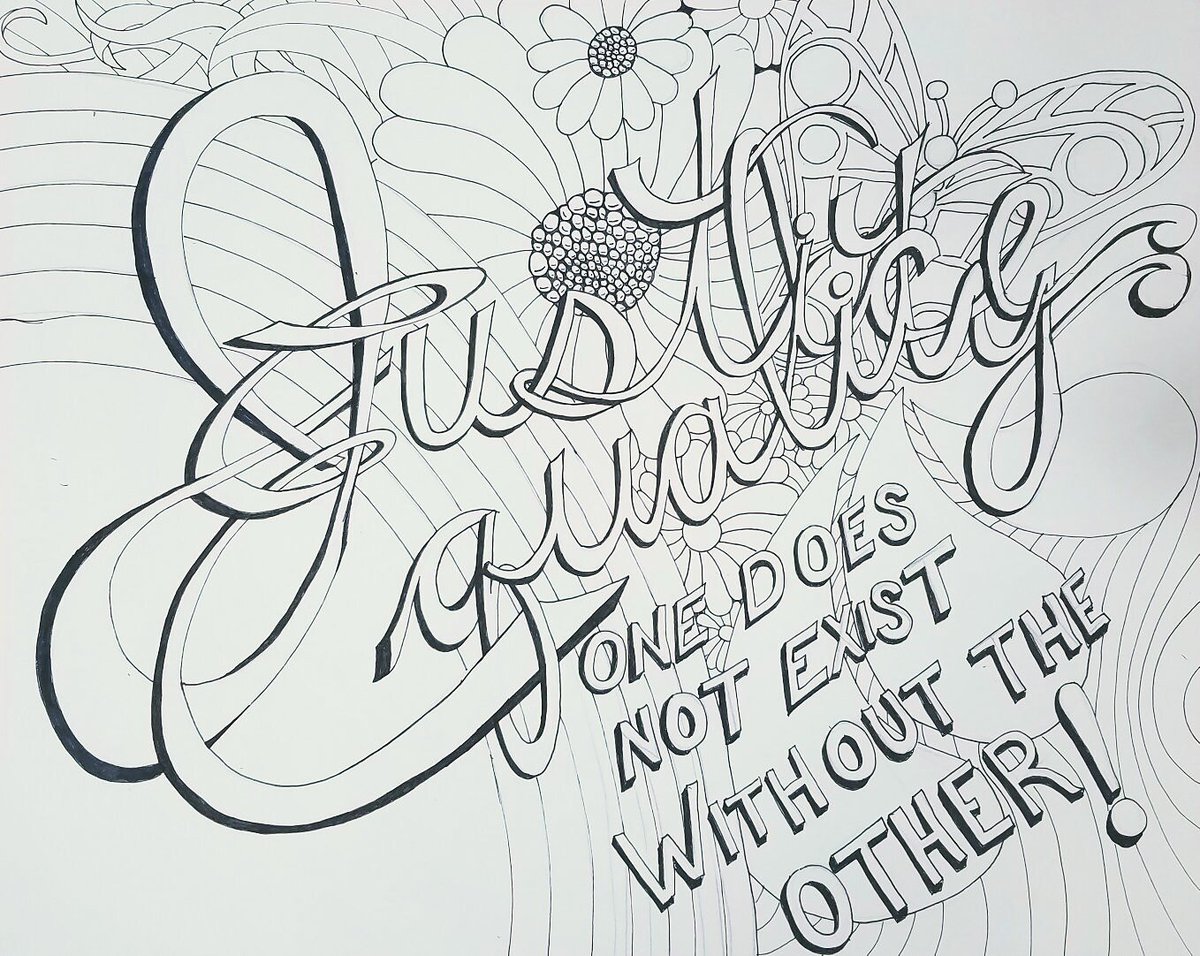 Justice
Equality
ONE DOES
NOT EXIST
WITHOUT THE
OTHER!